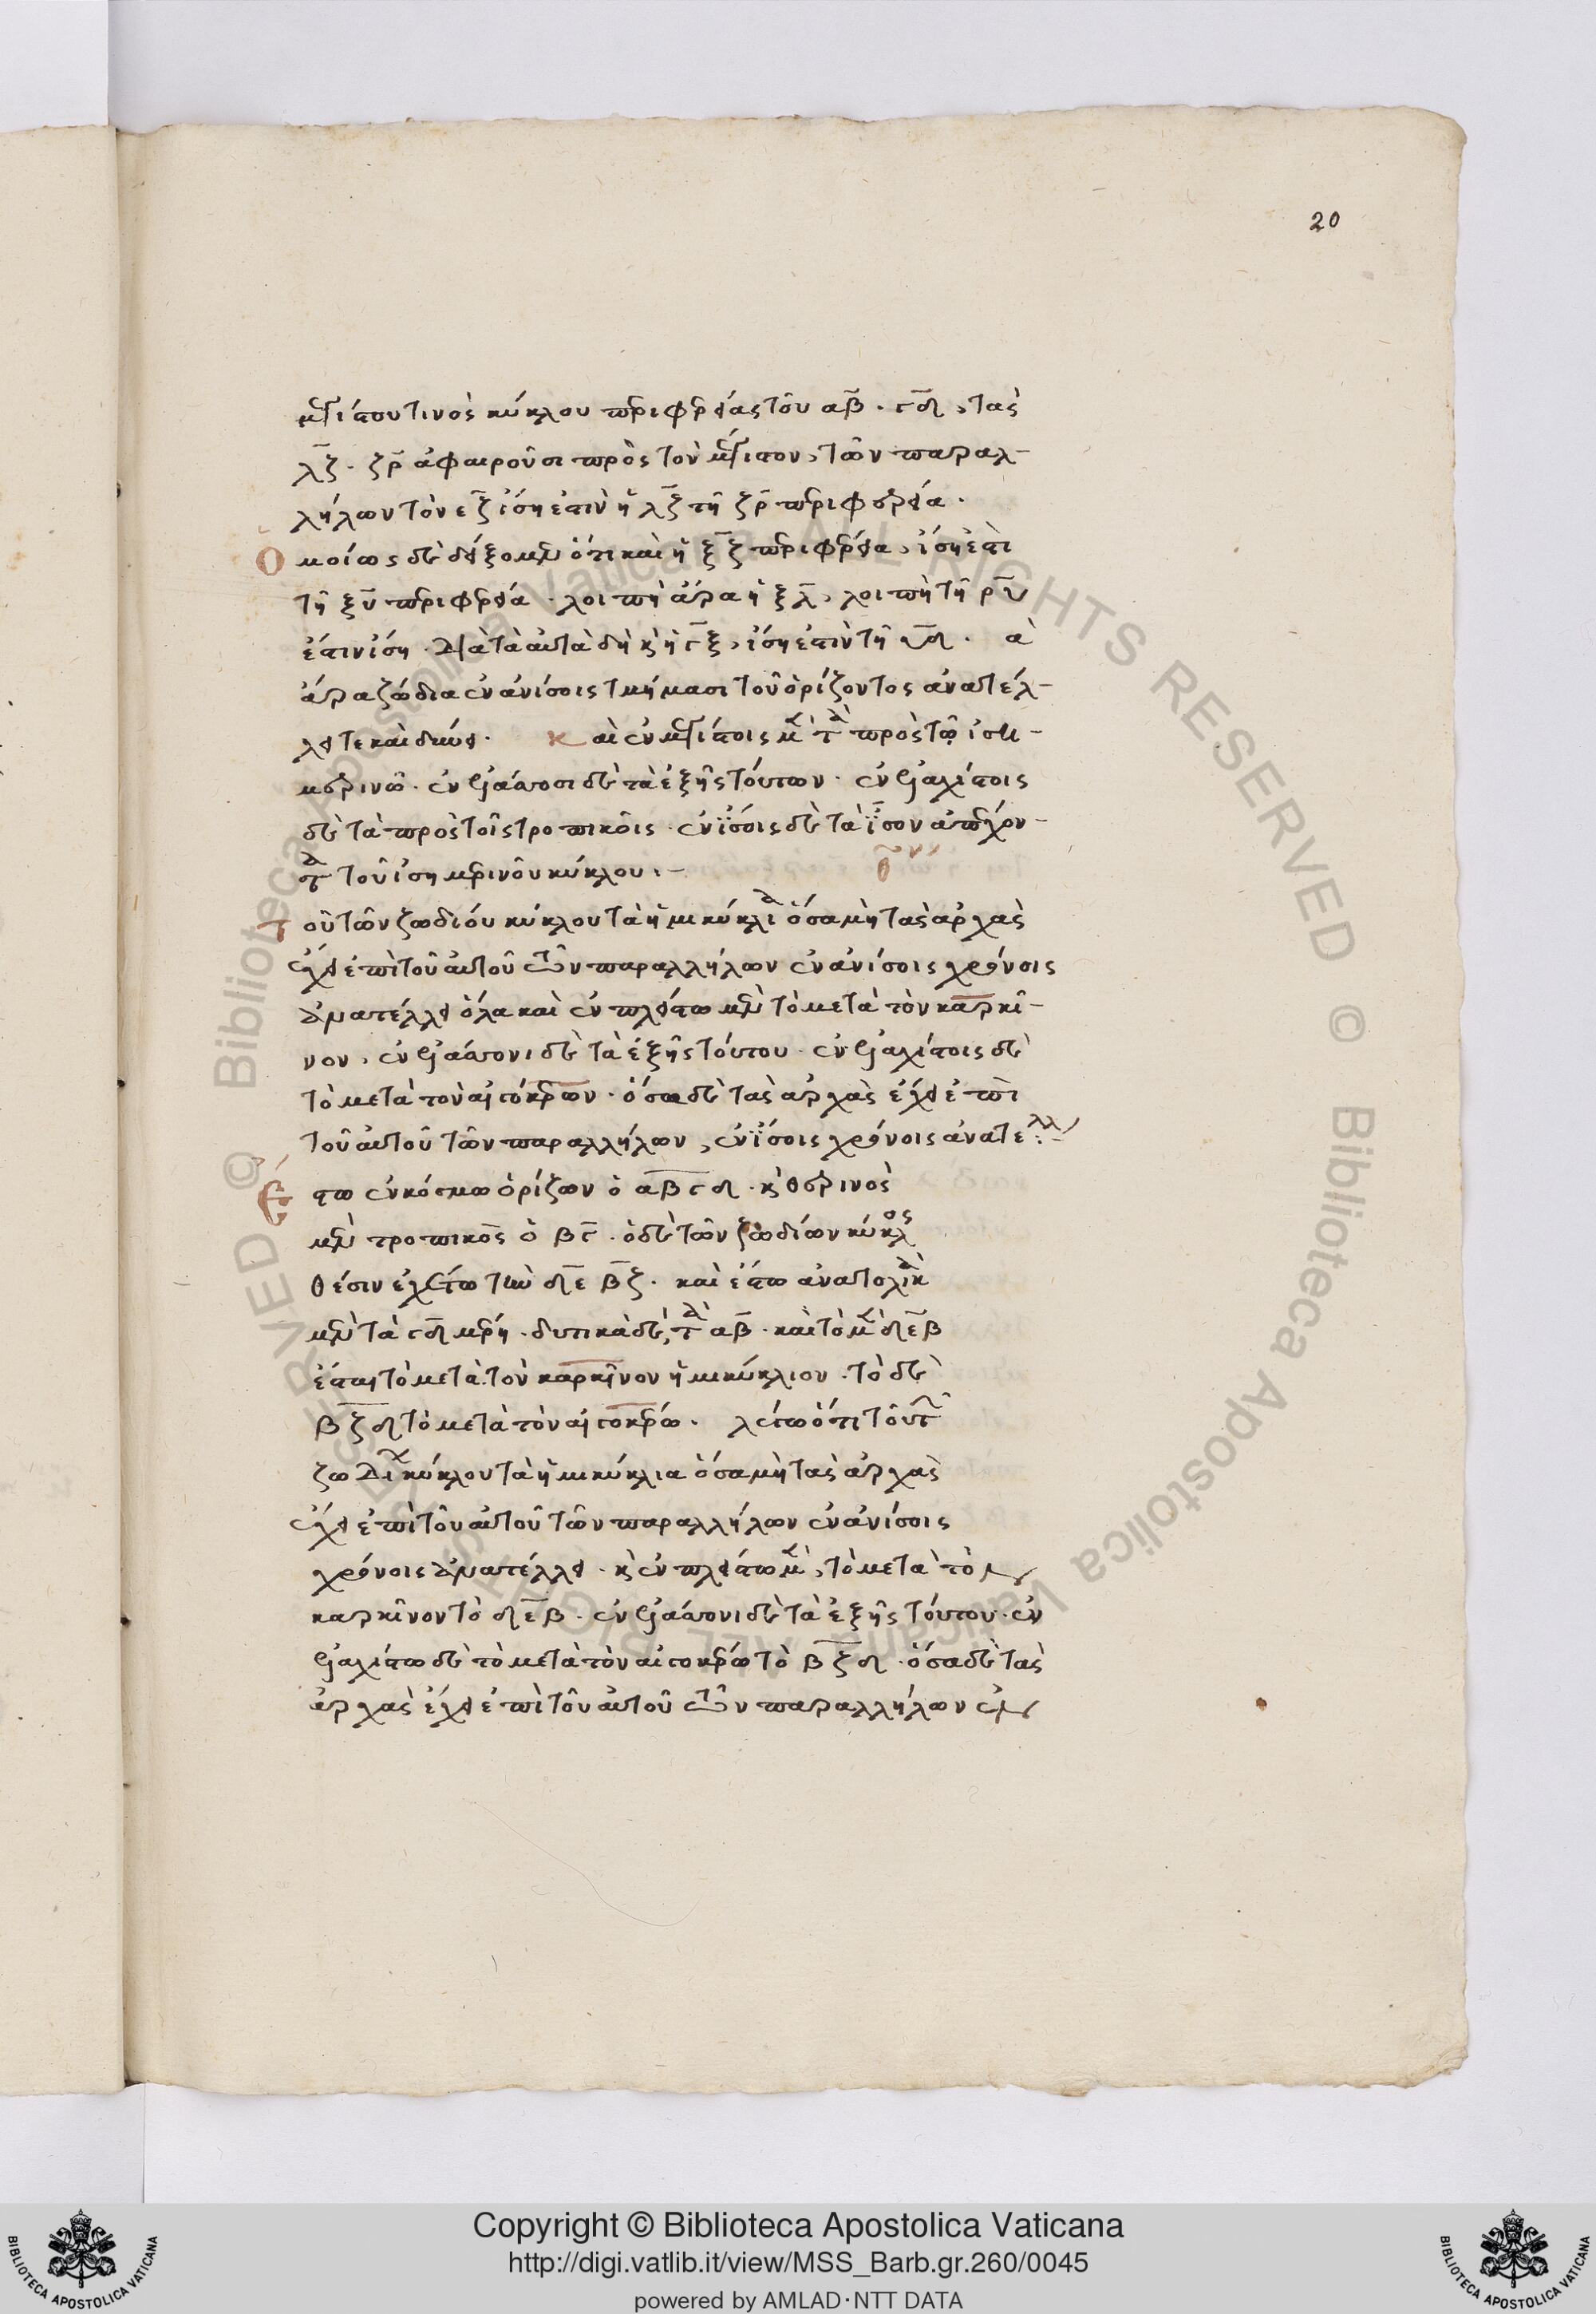 20
μεγίστου τινὸς κύκλου περιφερείας τοῦ αβ · γδ, τὰς
λζ · ζρ ἀφαιροῦσι πρὸς τὸν μέγιστον, τῶν παραλ-
λήλων τὸν εζ ἴση ἐστὶν ἡ λζ τῇ ζρ περιφερεία ·
Ὁμοίως δὲ δείξομεν ὅτι καὶ ἡ ξζ περιφέρεια, ἴση ἐστὶ
τῇ ξυ περιφερεία · λοιπὴ ἄρα ἡ ξλ, λοιπῇ τῇ ρυ
ἐστὶν ἴση · Διὰ τὰ αὐτὰ δὴ κὴ ἡ γξ, ἴση ἐστὶν τῇ υδ · ὰ
ἄρα ζώδια ἐν ἀνίσοις τμήμασι τοῦ ὁρίζοντος ἀνατέλ-
λει τε καὶ δύνει · καὶ ἐν μεγίστοις μὲν τὰ πρὸς τῷ ἰση-
μερινῷ · ἐν ἐλάσσοσι δὲ τὰ ἑξῆς τούτων · ἐν ἐλαχίστοις
δὲ τὰ πρὸς τοῖς τροπικοῖς · ἐν ἴσοις δὲ τὰ ἴσον ἀπέχον-
τα τοῦ ἰσημερινοῦ κύκλου ·
Τοῦ τῶν ζωδίου κύκλου τὰ ἡμικύκλια ὅσα μὴ τὰς ἀρχὰς
ἔχει ἐπὶ τοῦ αὐτοῦ τῶν παραλλήλων ἐν ἀνίσοις χρόνοις
ἀνατέλλει ὅλα καὶ ἐν πλείστω μὲν τὸ μετὰ τὸν καρκί-
νον, ἐν ἐλάσσονι δὲ τὰ ἑξῆς τούτου · ἐν ἐλαχίστοις δὲ
τὸ μετὰ τὸν αἰγόκερων · ὅσα δὲ τὰς ἀρχὰς ἔχει ἐπὶ
τοῦ αὐτοῦ τῶν παραλλήλων, ἐν ἴσοις χρόνοις ἀνατέλλ
Ἔστω ἐν κόσμω ὁρίζων ὁ αβγδ · κ θερινὸς
μὲν τροπικὸς ὁ βγ · ὁ δὲ τῶν ζωδίων κύκλος
θέσιν ἐχέτω τὴν δε βζ · καὶ ἔστω ἀνατολικὰ
μὲν τὰ γδ μέρη · δυτικὰ δὲ, τὰ αβ · καὶ τὸ μὲν δεβ
ἔσται τὸ μετὰ τὸν καρκῖνον ἡμικύκλιον · τὸ δὲ
βζδ τὸ μετὰ τὸν αἰγόκερω · λέγω ὅτι τοῦ τῶν
ζωδίων κύκλου τὰ ἡμικύκλια ὅσα μὴ τὰς ἀρχὰς
ἔχει ἐπὶ τοῦ αὐτοῦ τῶν παραλλήλων ἐν ἀνίσοις
χρόνοις ἀνατέλλει · κ ἐν πλείστω μὲν, τὸ μετὰ τὸν
καρκῖνον τὸ δεβ · ἐν ἐλάσσονι δὲ τὰ ἑξῆς τούτου · ἐν
ἐλαχίστω δὲ τὸ μετὰ τὸν αἰγόκερω τὸ βζδ · ὅσα δὲ τὰς
ἀρχὰς ἔχει ἐπὶ τοῦ αὐτοῦ τῶν παραλλήλων ἐν
© Biblioteca Apostolica Vaticana ALL RIGHTS RESERVED © Biblioteca Apostolica Vaticana ALL RIGHTS RESERVED
Copyright © Biblioteca Apostolica Vaticana
http://digi.vatlib.it/view/MSS_Barb.gr.260/0045
powered by AMLAD·NTT DATA
BIBLIOTECA APOSTOLICA VATICANA
BIBLIOTECA APOSTOLICA VATICANA